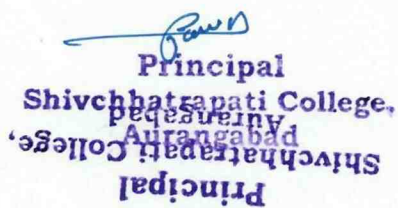 Principal
Shivchhatrapati College,
Aurangabad
Principal
Shivchhatrapati College,
Aurangabad